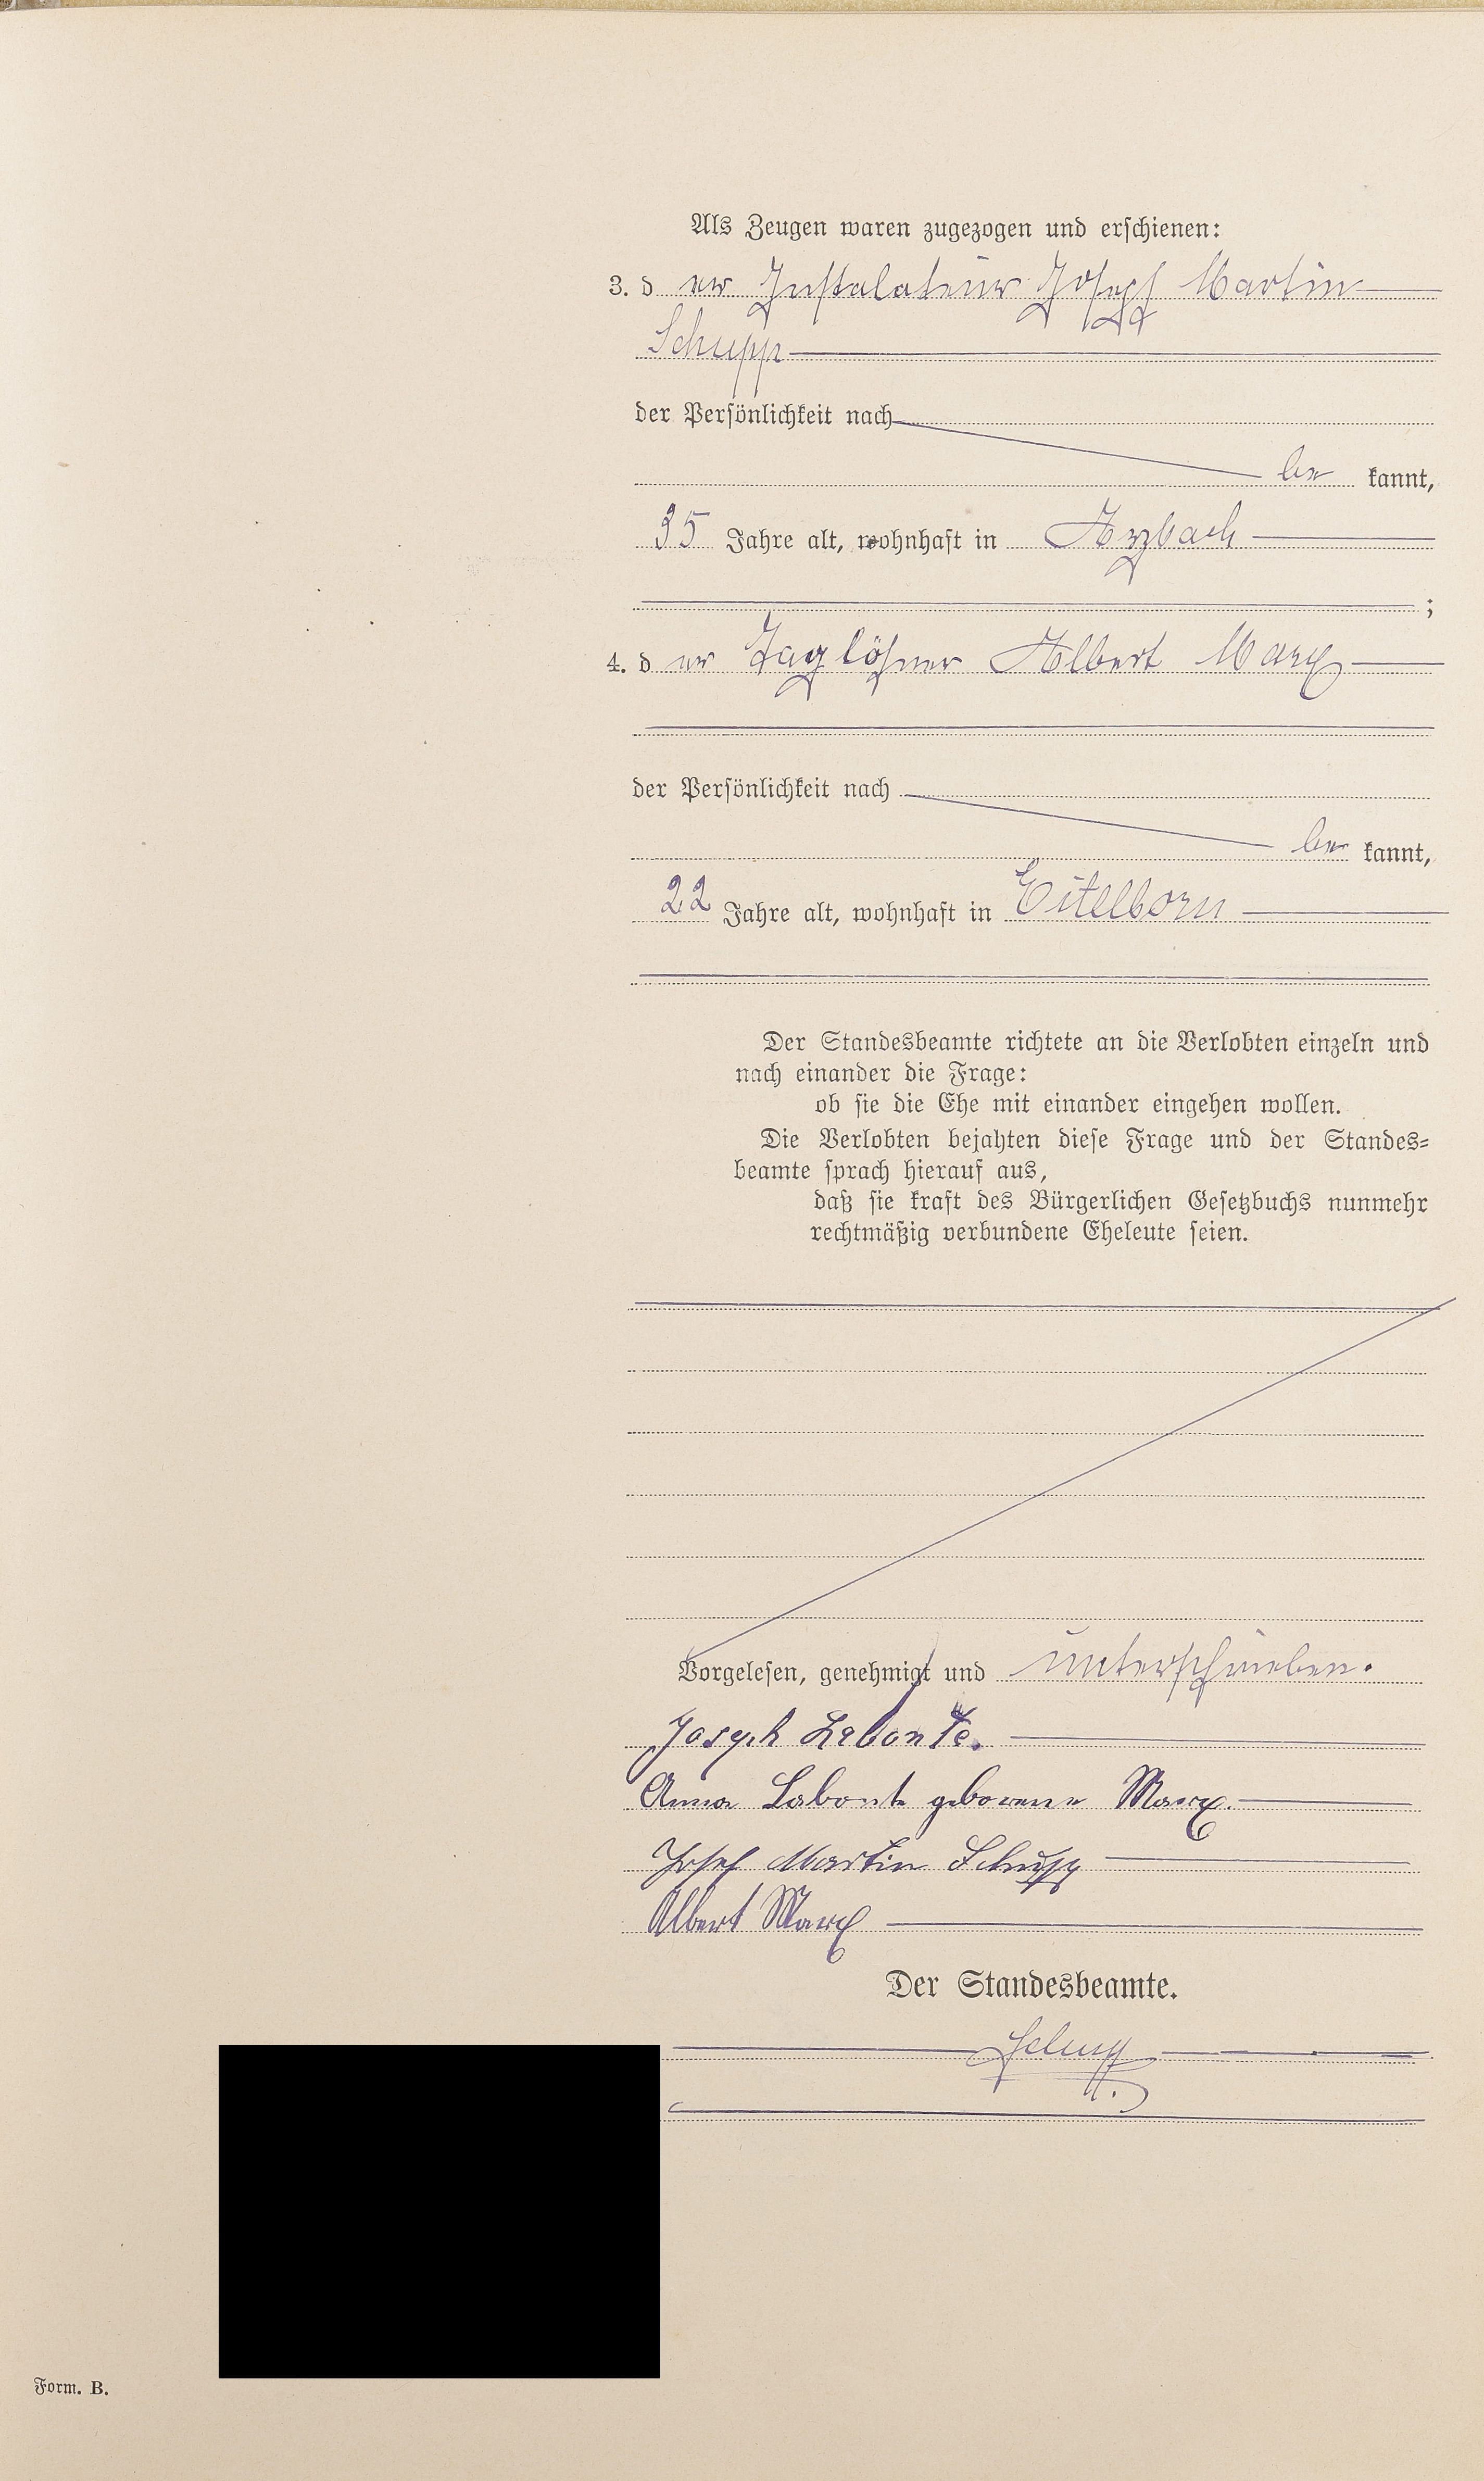 Als Zeugen waren zugezogen und erschienen:
3. d er Installateur Joseph Martin
Schupp
der Persönlichkeit nach
be kannt,
35 Jahre alt, wohnhaft in Arzbach
;
4. d er Taglöhner Albert Marx
der Persönlichkeit nach
be kannt,
22 Jahre alt, wohnhaft in Eitelborn
Der Standesbeamte richtete an die Verlobten einzeln und
nach einander die Frage:
ob sie die Ehe mit einander eingehen wollen.
Die Verlobten bejahten diese Frage und der Standes-
beamte sprach hierauf aus,
daß sie kraft des Bürgerlichen Gesetzbuchs nunmehr
rechtmäßig verbundene Eheleute seien.
Vorgelesen, genehmigt und unterschrieben.
Joseph Labonte.
Anna Labonte geborene Marx.
Josef Martin Schupp
Albert Marx
Der Standesbeamte.
Form. B.